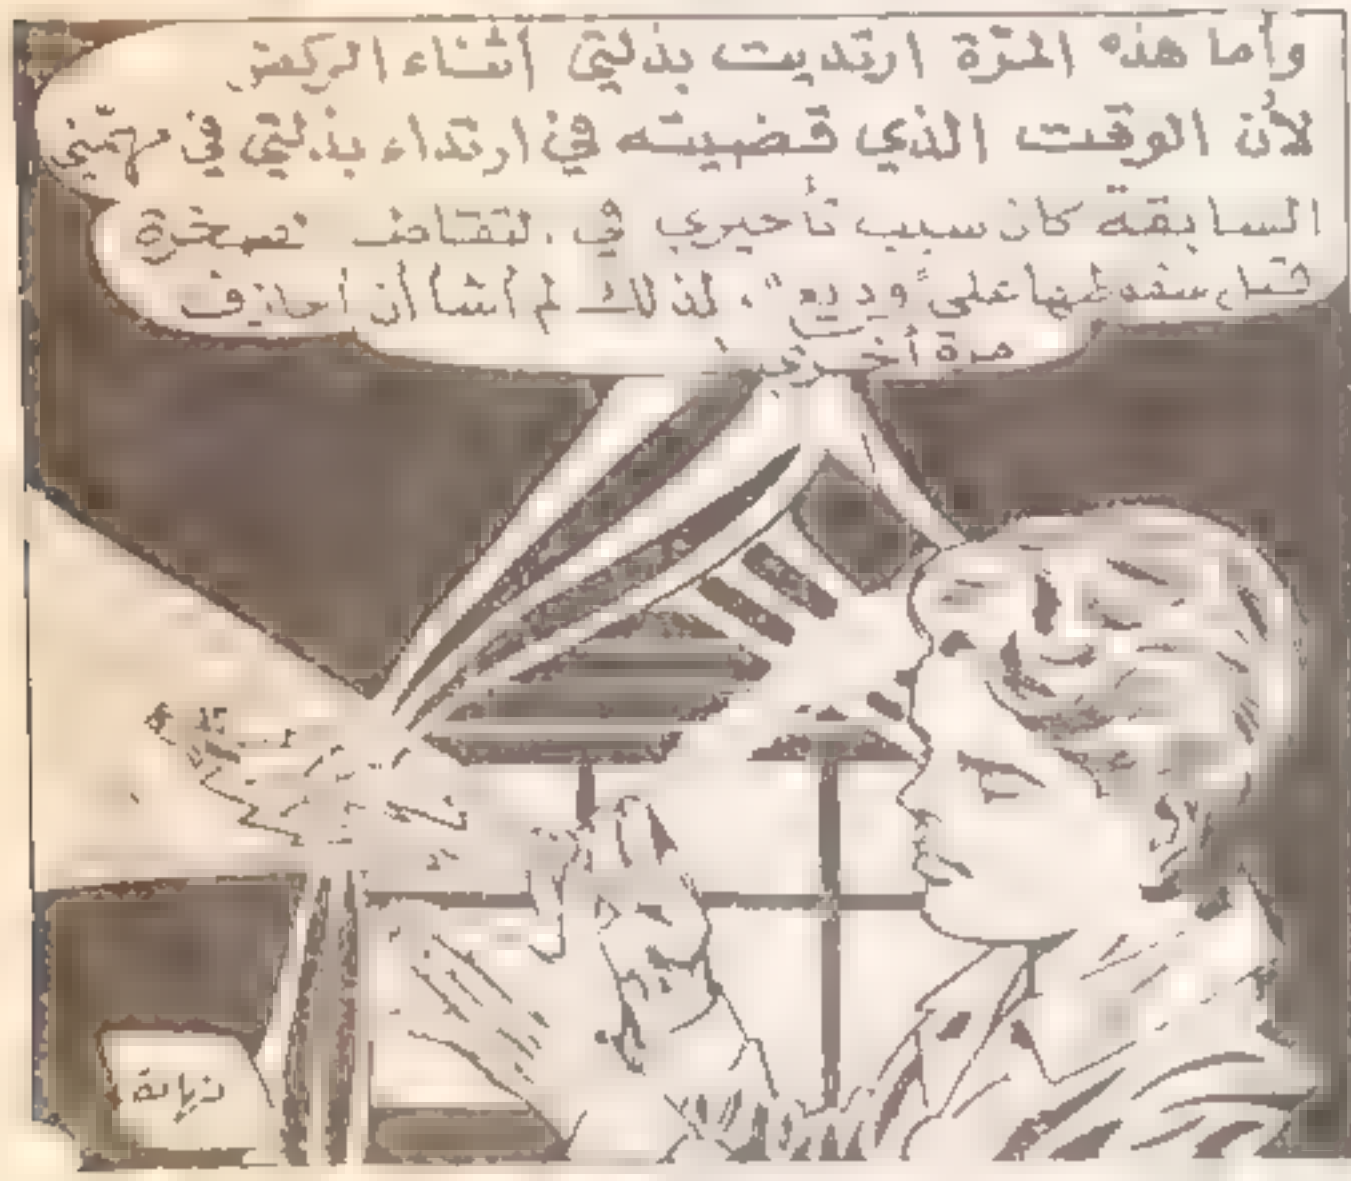 وأما هذه المرّة ارتديت بذلتي أثناء الركض
لأن الوقت الذي قضيته في ارتداء بذلتي في مهمّتي
السابقة كان سبب تأخيري في التقاط الصخرة
قبل سقوطها على "وديع"، لذلك لم أشأ أن أجازف
مرة أخرى
نهاية